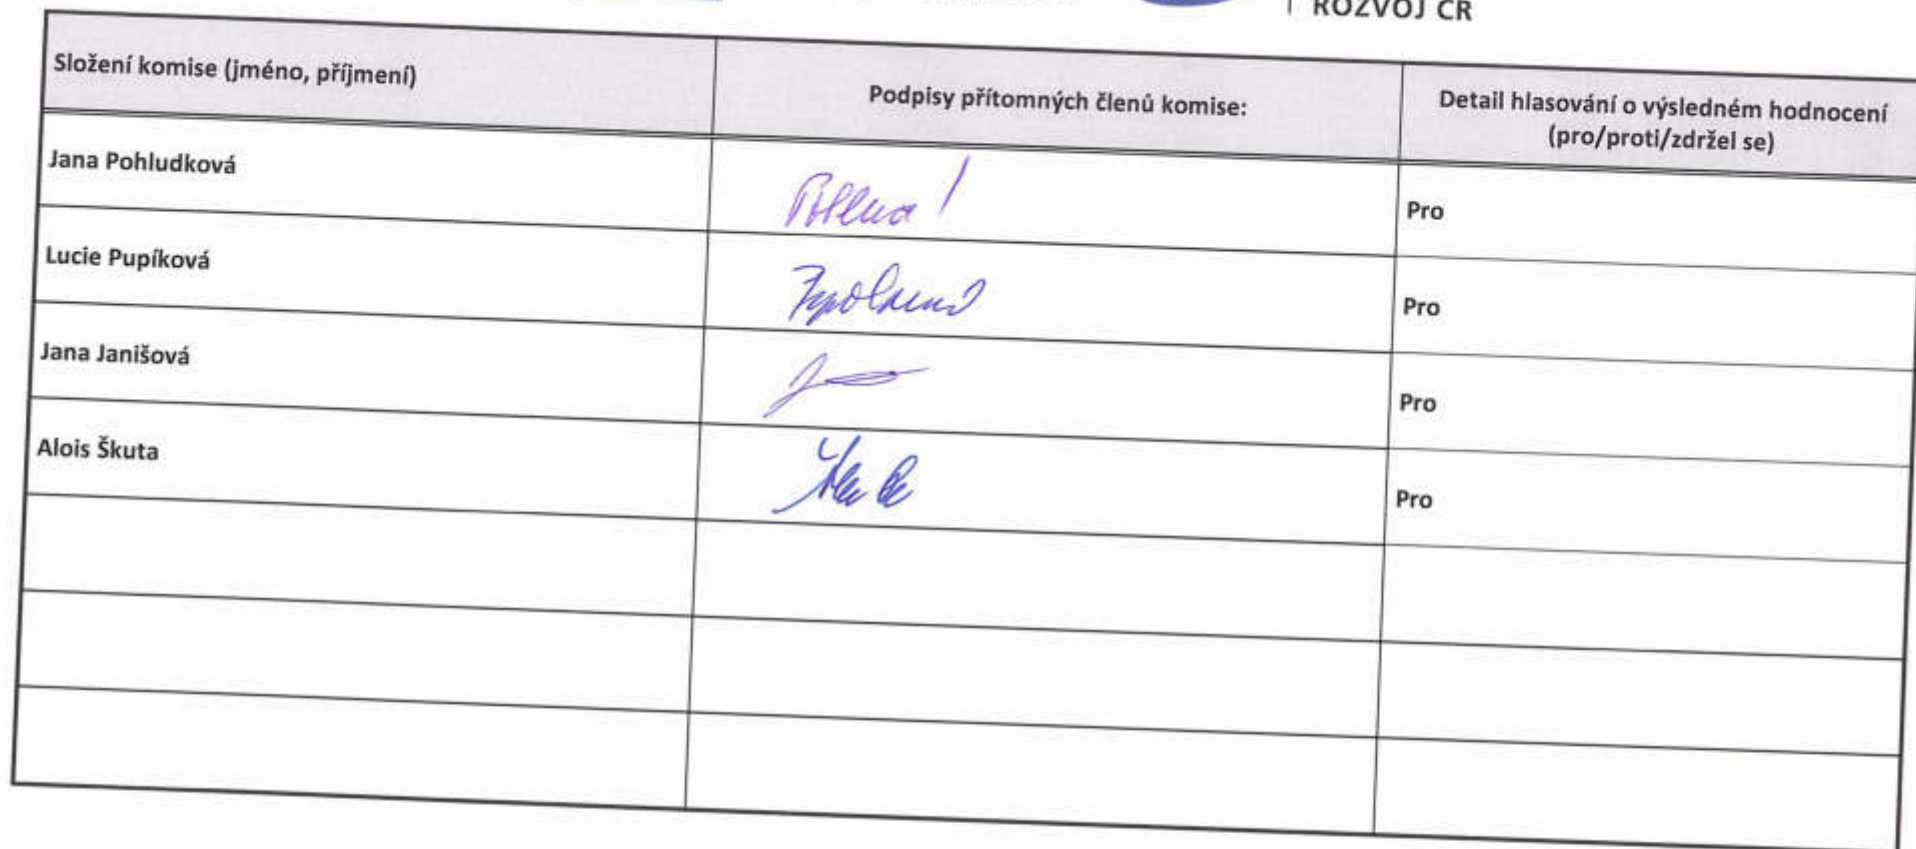 ROZVOJ ČR
Složení komise (jméno, příjmení)
Podpisy přítomných členů komise:
Detail hlasování o výsledném hodnocení
(pro/proti/zdržel se)
Jana Pohludková
Pro
Lucie Pupíková
Pro
Jana Janišová
Pro
Alois Škuta
Pro